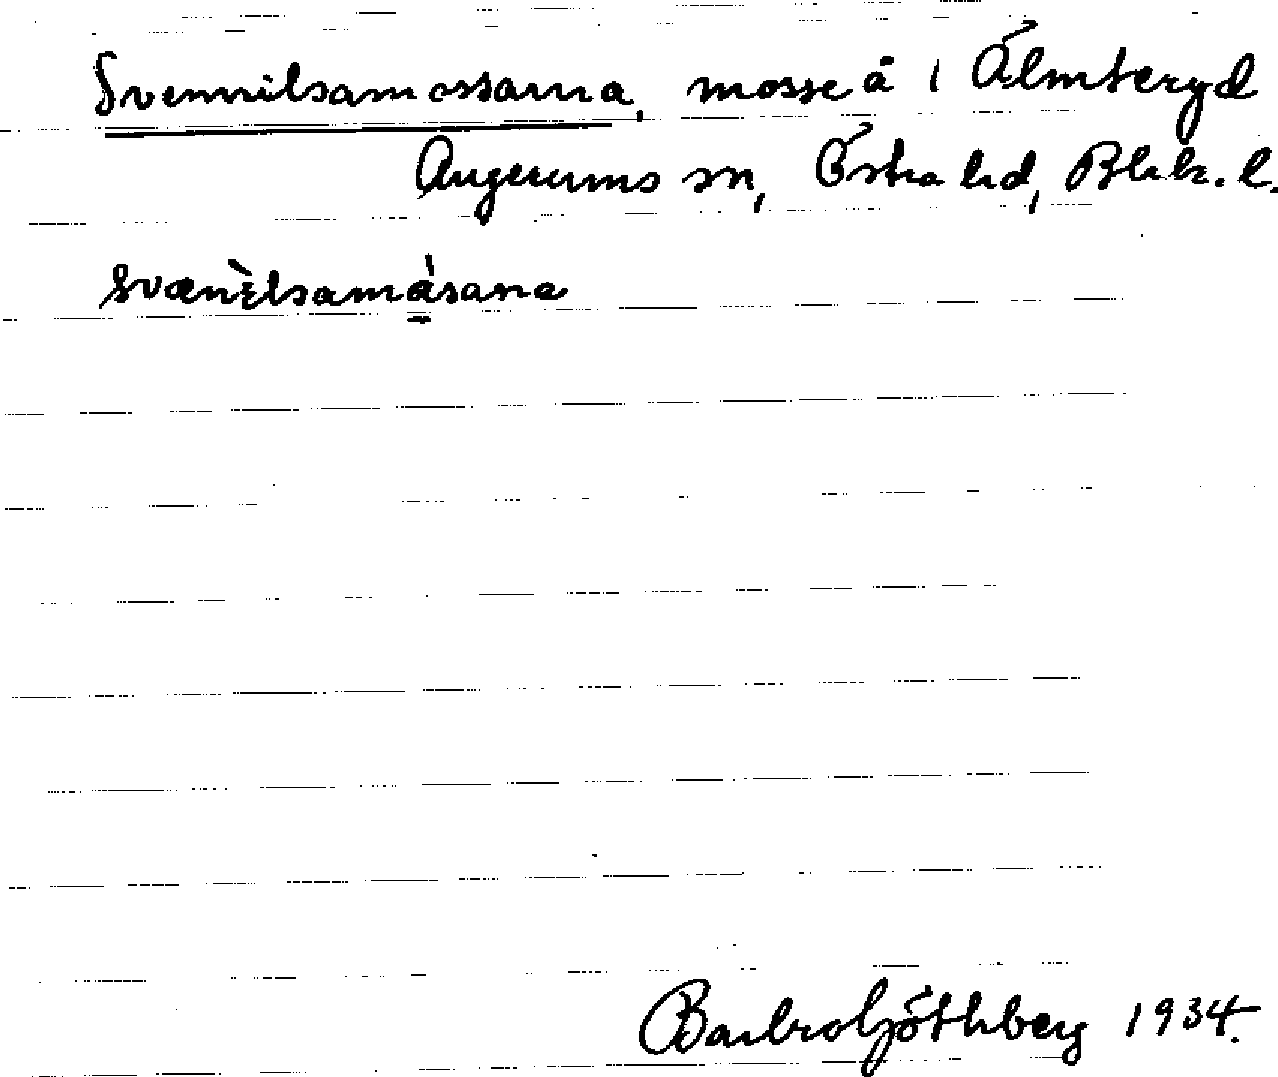 Svennilsamossarna, mosse å 1 Älmteryd
Augerums sn, Östra hd, Blek. l.
svænìlsamåsana
Barbro Göthberg 1934.